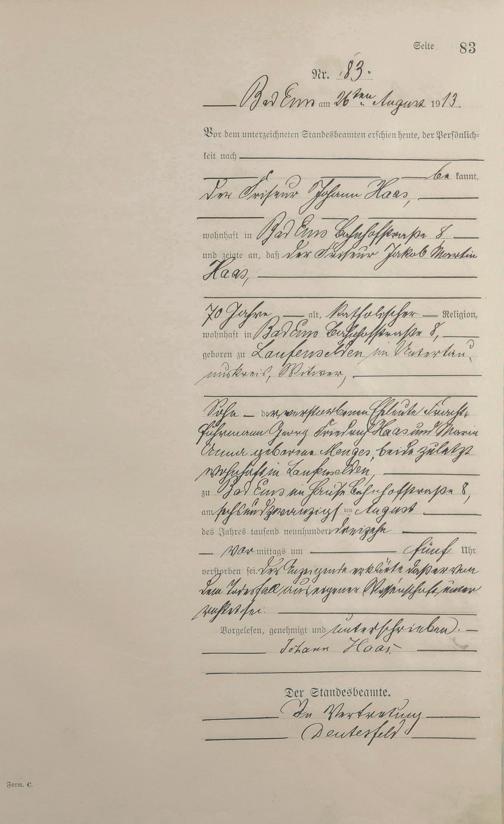 Seite 83
Nr. 83.
Bad Ems am 26ten August 1913.
Vor dem unterzeichneten Standesbeamten erschien heute, der Persönlich-
keit nach
be kannt,
der Friseur Johann Haas,
wohnhaft in Bad Ems Bahnhofstraße 8
und zeigte an, daß der Friseur Jakob Martin
Haas,
70 Jahre alt, katholischer Religion,
wohnhaft in Bad Ems Bahnhofstraße 8,
geboren zu Laufenselden im Untertau-
nuskreis, Witwer,
Sohn der verstorbenen Eheleute Fracht-
fuhrmann Georg Haas und Maria
Anna geborene Menges, beide zuletzt
wohnhaft in Laufenselden,
zu Bad Ems im Hause Bahnhofstraße 8,
am sechsundzwanzigsten August
des Jahres tausend neunhundert dreizehn
vor mittags um fünf Uhr
verstorben sei. Der Anzeigende erklärte daß er von
dem Todesfall aus eigener Wissenschaft unter-
richtet sei.
Vorgelesen, genehmigt und unterschrieben.
Johann Haas.
Der Standesbeamte.
In Vertretung
Form. C.